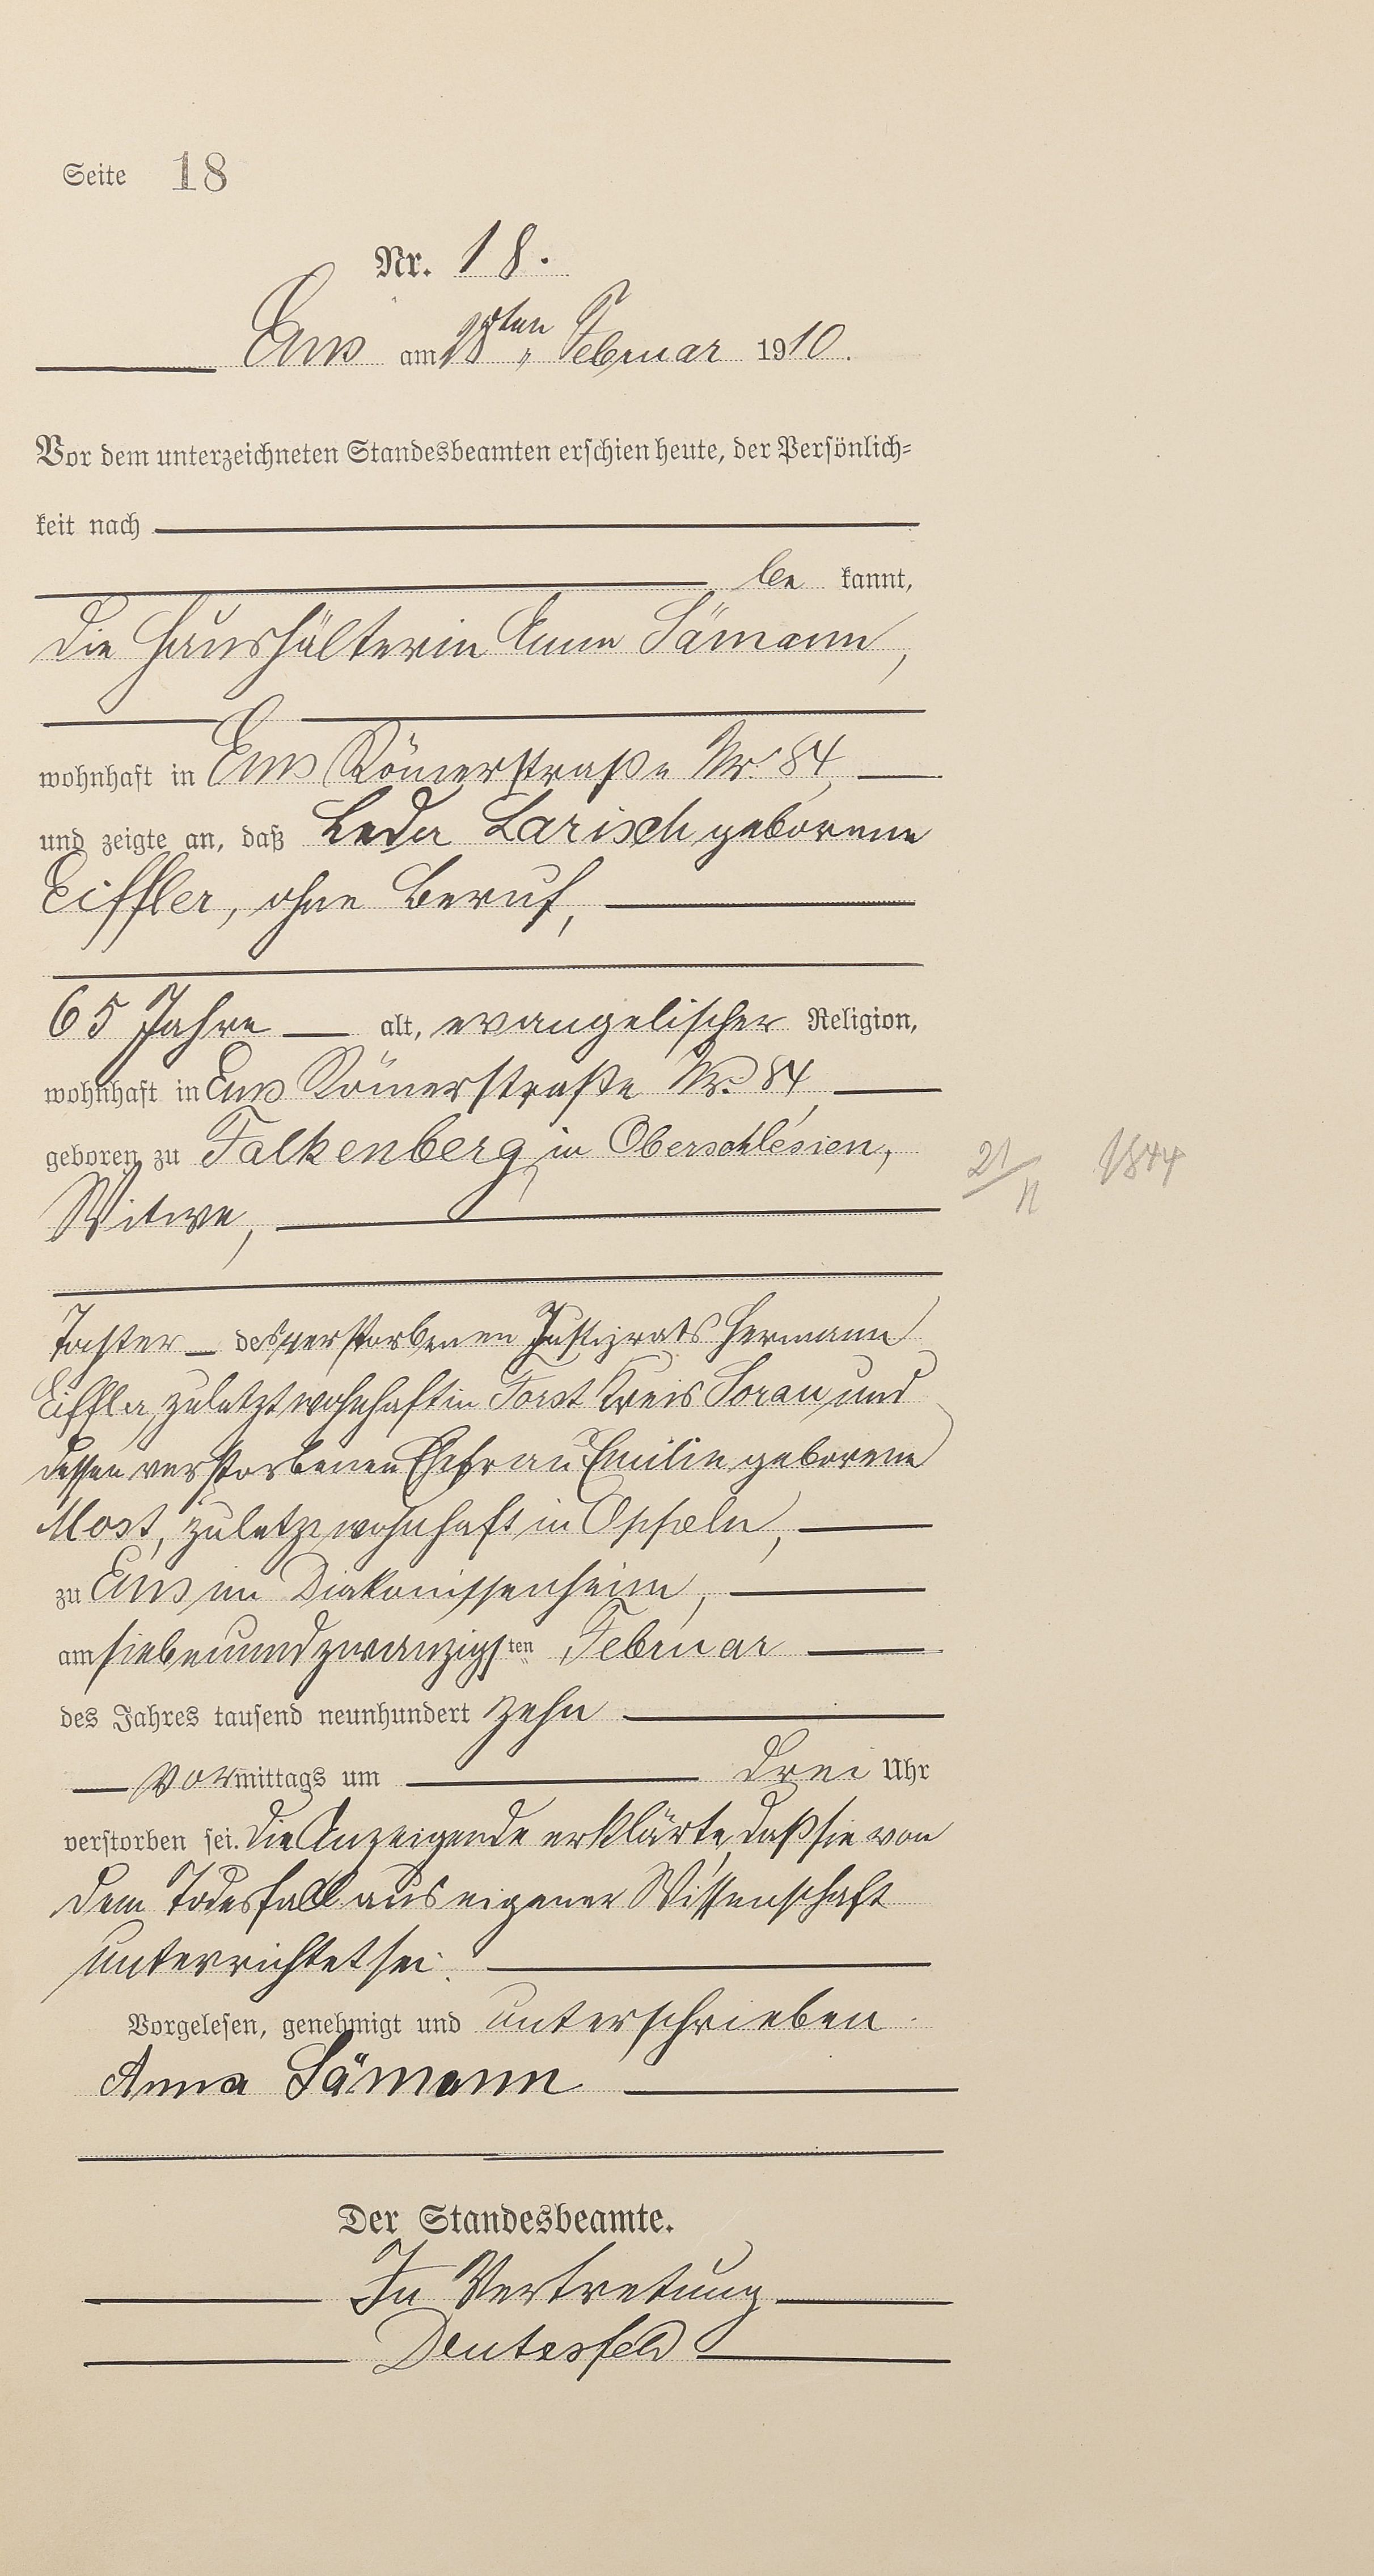 Seite 18
Nr. 18.
Ems am 28ten Februar 1910.
Vor dem unterzeichneten Standesbeamten erschien heute, der Persönlich-
keit nach
be kannt,
die Haushälterin Anna Sämann,
wohnhaft in Ems Römerstraße Nr. 84,
und zeigte an, daß Leda Larisch geborene
Eiffler, ohne Beruf,
65 Jahre alt, evangelischer Religion,
wohnhaft in Ems Römerstraße Nr. 84,
geboren zu Falkenberg in Oberschlesien,
21/11 1844
Witwe,
Tochter des verstorbenen Justizrats Hermann
Eiffler, zuletzt wohnhaft in Forst Kreis Sorau und
dessen verstorbenen Ehefrau Emilie geborene
Most, zuletzt wohnhaft in Oppeln,
zu Ems im Diakonissenheim,
am siebenundzwanzigsten Februar
des Jahres tausend neunhundert zehn
vormittags um drei Uhr
verstorben sei. Die Anzeigende erklärte, daß sie von
dem Todesfall aus eigener Wissenschaft
unterrichtet sei.
Vorgelesen, genehmigt und unterschrieben.
Anna Sämann
Der Standesbeamte.
In Vertretung